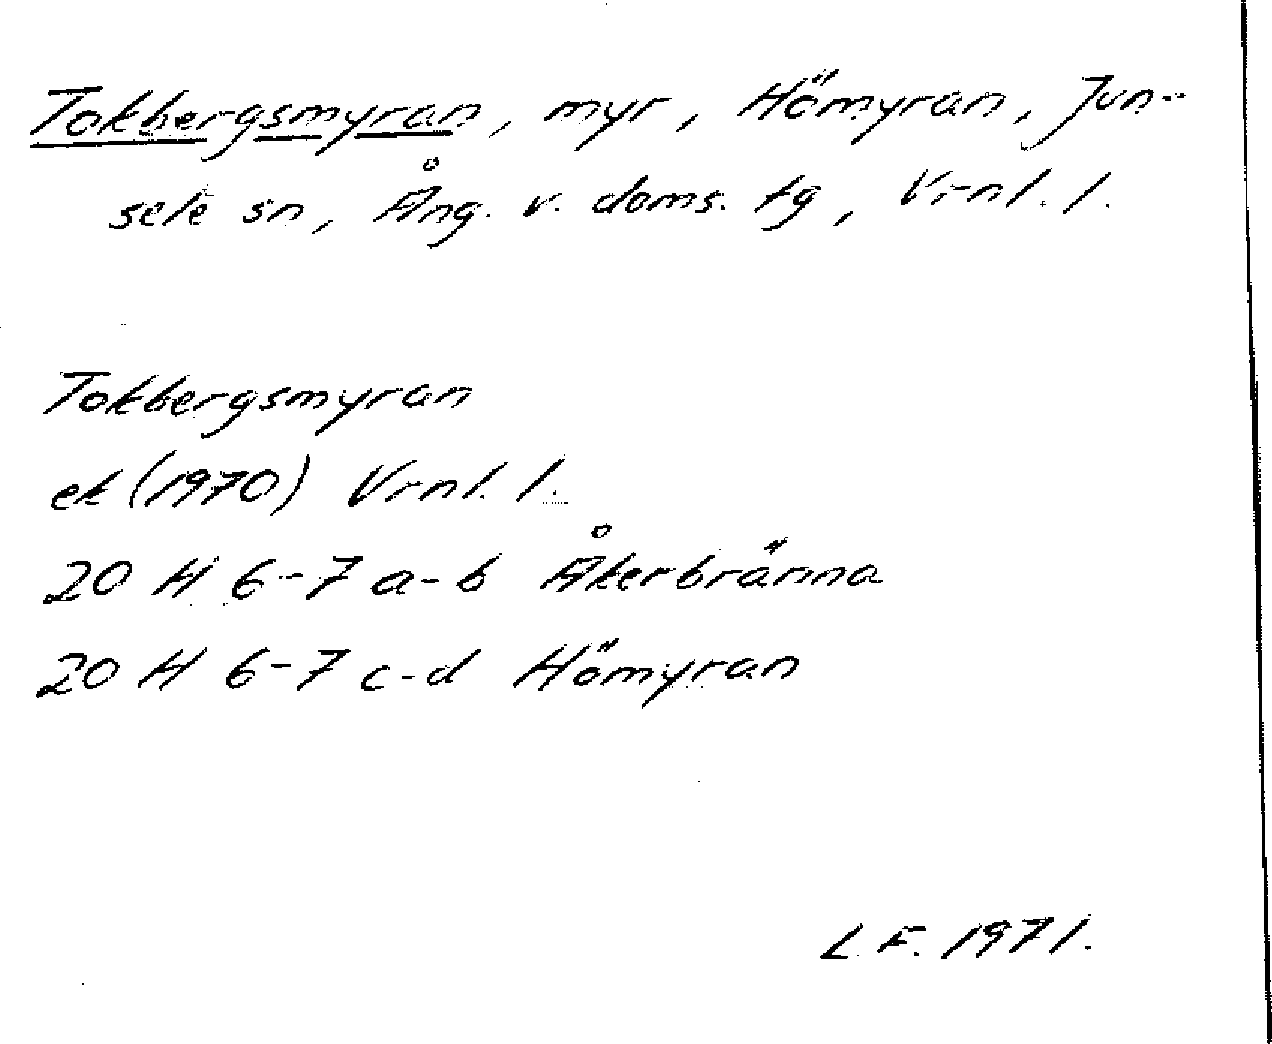 Tokbergsmyran, myr, Hömyran, Jun-
sele sn, Ång. v. doms. tg, Vrnl. l.
Tokbergsmyran
ek (1970) Vrnl. l.
20 H 6-7 a-b Åkerbränna
20 H 6-7 c-d Hömyran
L. F. 1971.